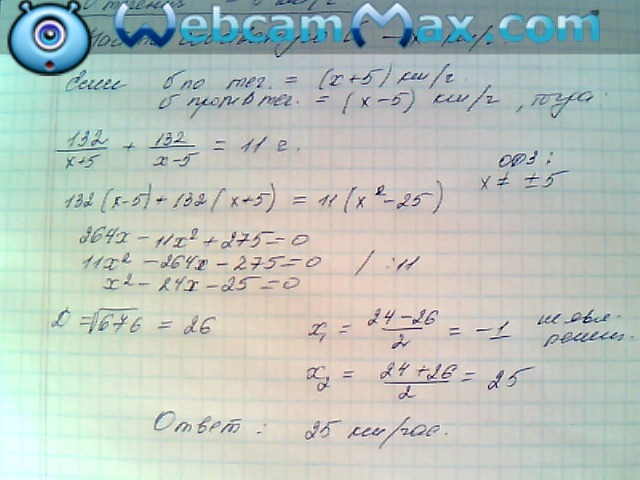 WebcamMax.com
б по теч. = (x+5) км/г
б против теч. = (x-5) км/г, тогда
132/x+5 + 132/x-5 = 11 г.
ОДЗ:
x ≠ ±5
132(x-5)+132(x+5) = 11(x²-25)
264x-11x²+275=0
11x²-264x-275=0 / :11
x²-24x-25=0
D=√676 = 26
x₁ = 24-26/2 = -1
x₂ = 24+26/2 = 25
Ответ: 25 км/час.